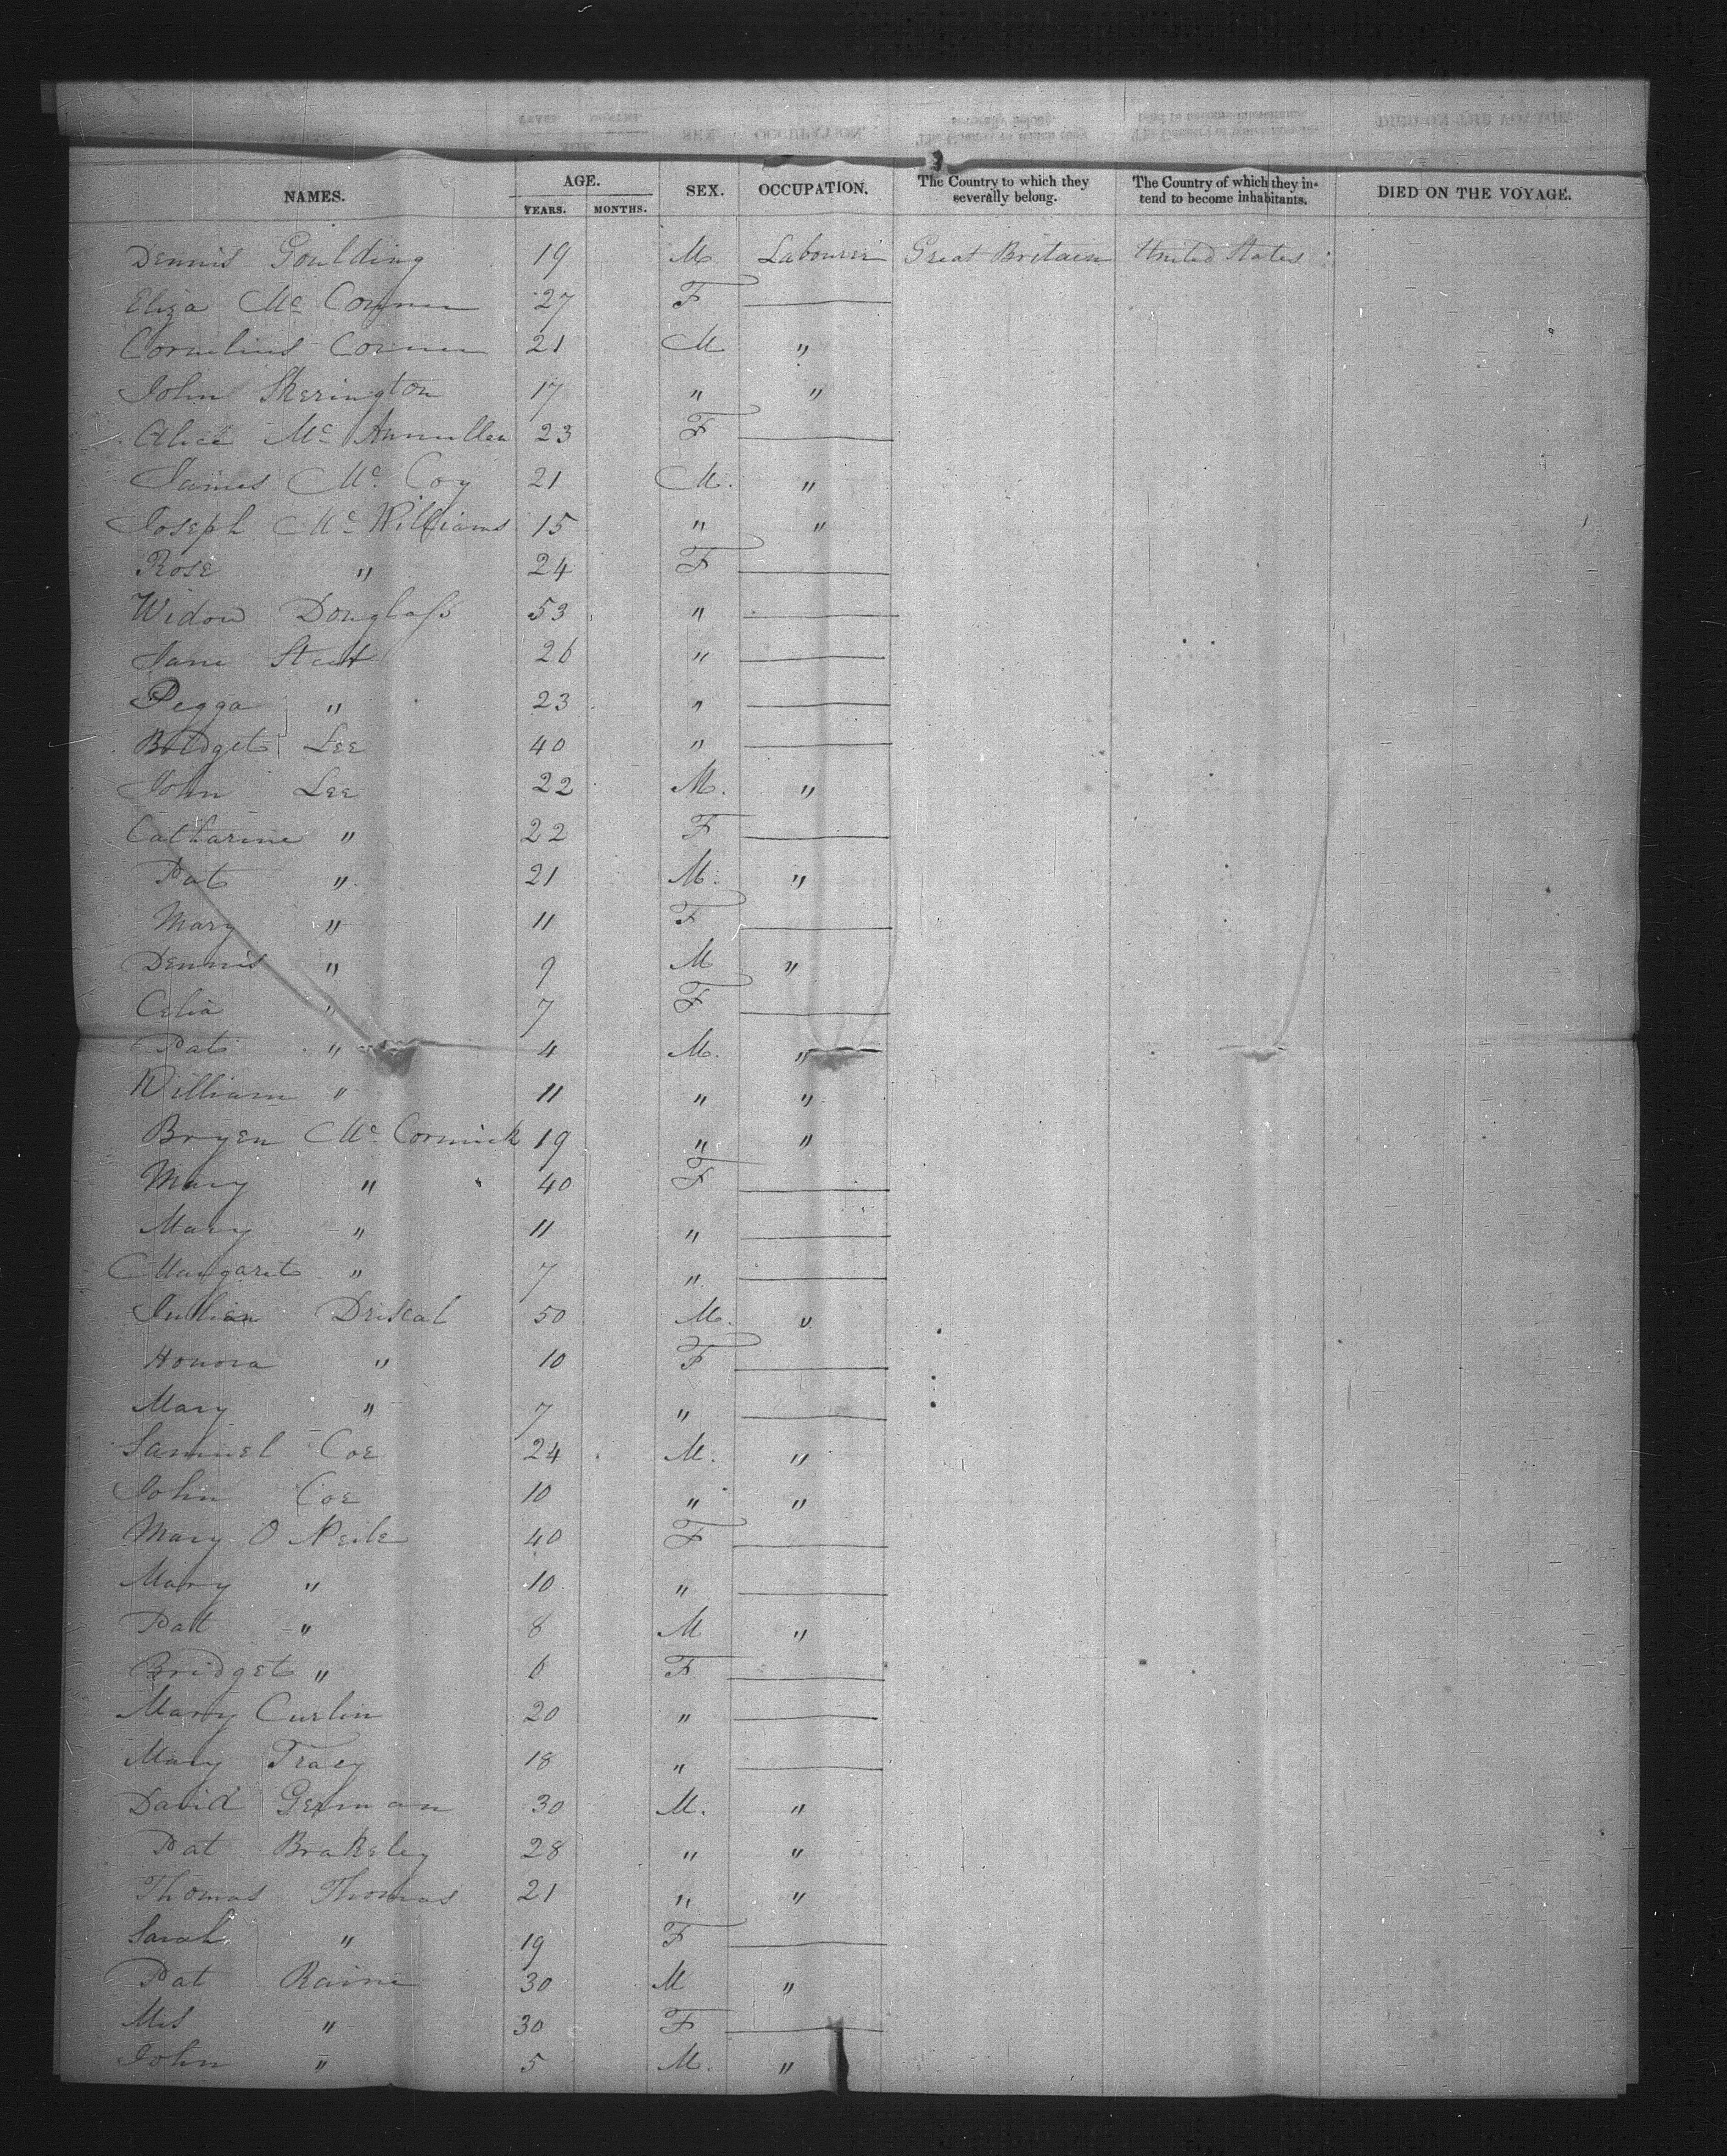 NAMES. AGE. YEARS. MONTHS. SEX. OCCUPATION. The Country to which they severally belong. The Country of which they intend to become inhabitants. DIED ON THE VOYAGE.
Dennis Goulding 19 M. Labourer Great Britain United States
Eliza Mc Conner 27 F
Cornelius Conner 21 M "
John Skerington 17 " "
Alice Mc 23 F
James Mc Coy 21 M. "
Joseph Mc Williams 15 " "
Rose " 24 F
Widow Douglass 53 "
Jane 26 "
Pegga " 23 "
Bridget Lee 40 "
John Lee 22 M. "
Catharine " 22 F
Pat " 21 M. "
Mary " 11 F
Dennis " 9 M "
Celia " 7 F
Pat " 4 M. "
William " 11 " "
Bryen Mc Cormick 19 " "
Mary " 40 F
Mary " 11 "
Margaret " 7 "
Driscal 50 M. "
Honora " 10 F
Mary " 7 "
Samuel Coe 24 M. "
John Coe 10 " "
Mary O Neile 40 F
Mary " 10 "
Pat " 8 M "
Bridget " 6 F
Mary Curlin 20 "
Mary Tracy 18 "
David German 30 M. "
Pat Brakeley 28 " "
Thomas Thomas 21 " "
Sarah " 19 F
Pat Raine 30 M "
Mrs " 30 F
John " 5 M. "